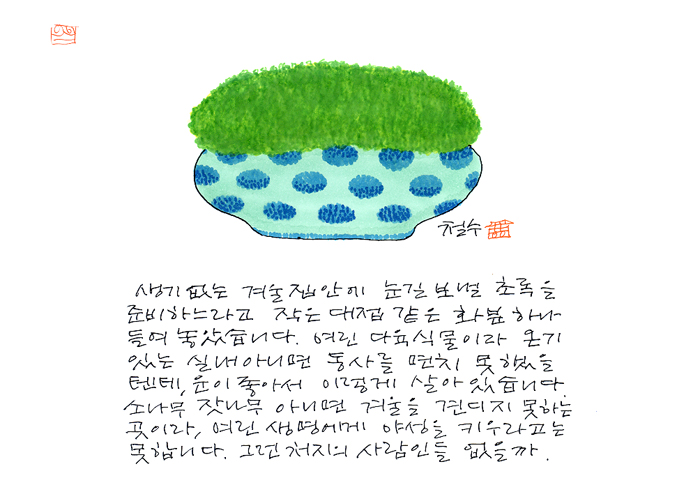 철수
생기 없는 겨울 집안에 눈길 보낼 초록을
준비하느라고 작은 대접 같은 화분 하나
들여 놓았습니다. 여린 다육식물이라 온기
있는 실내 아니면 동사를 면치 못했을
텐테, 운이 좋아서 이렇게 살아 있습니다.
소나무 잣나무 아니면 겨울을 견디지 못하는
곳이라, 여린 생명에게 야성을 키우라고는
못합니다. 그런 처지의 사람인들 없을까.